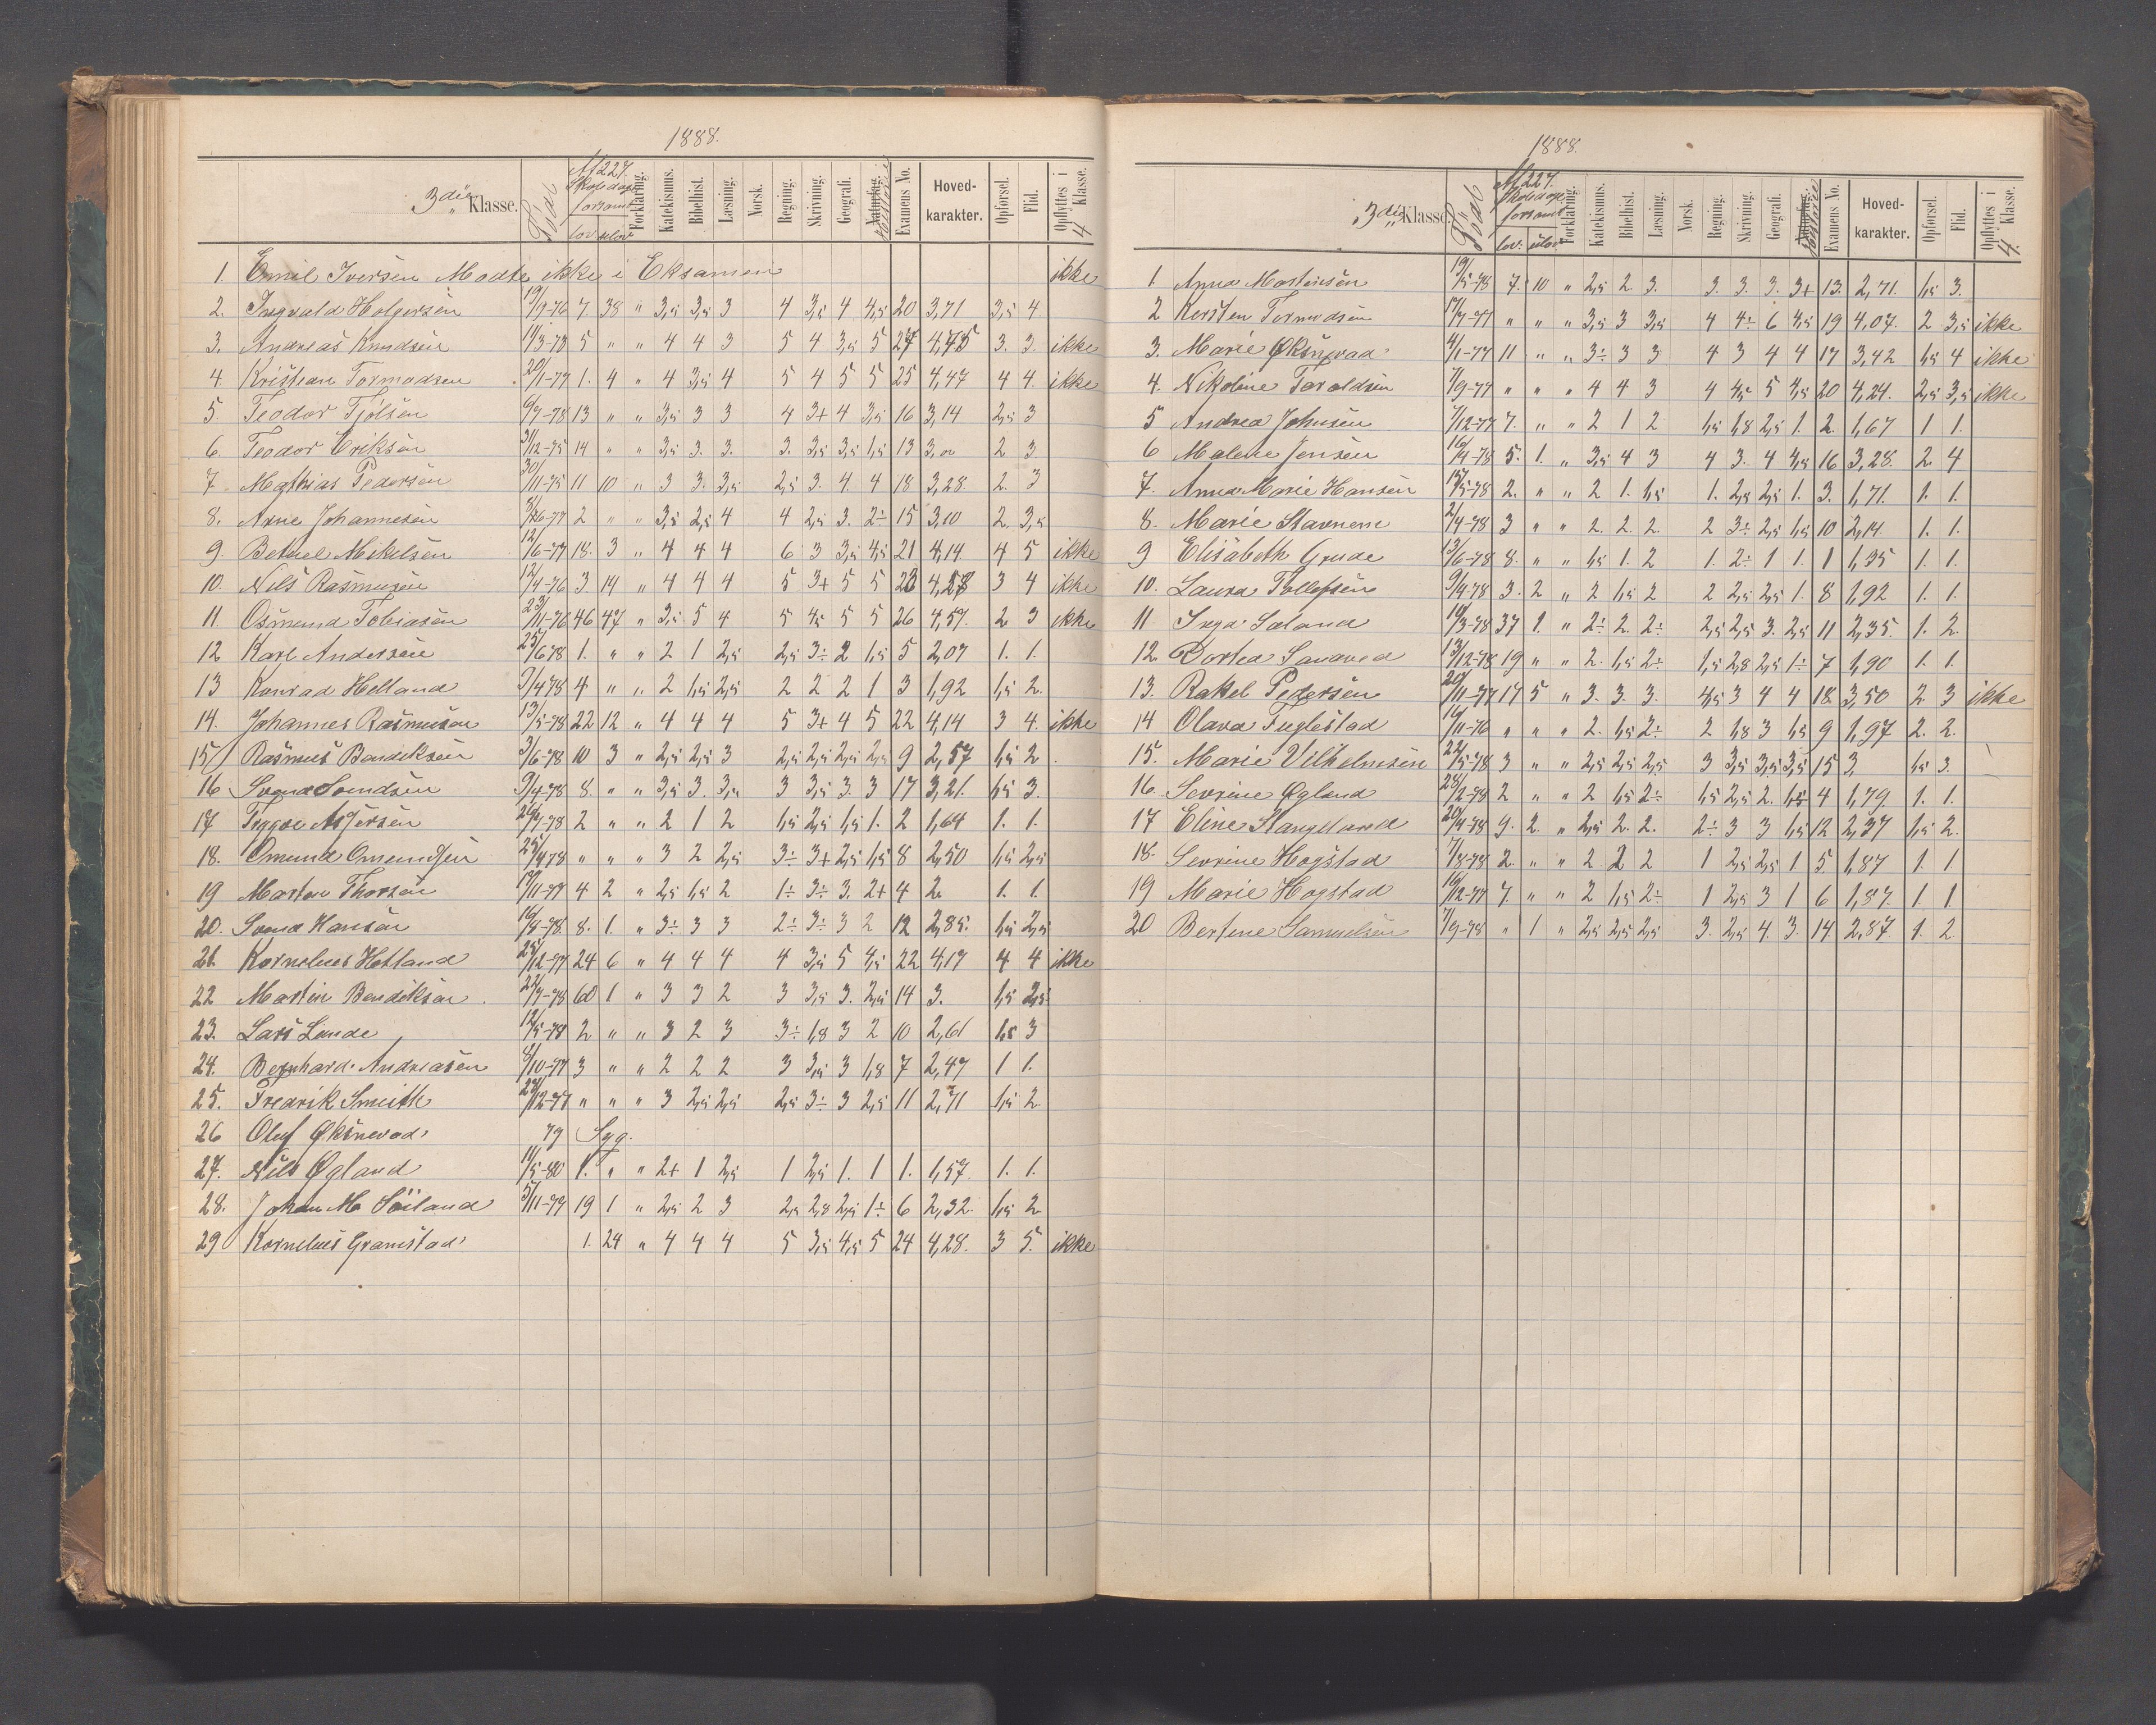 1888.
3die Klasse. Född At 227. Skoledage forsømt lov. ulov. Forklaring. Katekismus. Bibelhist. Læsning. Norsk. Regning. Skrivning. Geografi. Naturfag. Historie Examens No. Hoved-karakter. Opførsel. Flid. Opflyttes i 4 Klasse.
1. Emil Iversen Mødte ikke i Eksamen ikke
2. Ingvald Holgersen 19/9-76 7. 38 " 3,5 3,5 3 4 3,5 4 4,5 20 3,71 3,5 4
3. Andreas Knudsen 11/3-78 5 " " 4 4 3 5 4 3,5 5 27 4,45 3. 3. ikke
4. Kristian Tormodsen 20/1-77 1. 4 " 4 3,5 4 5 4 5 5 25 4,47 4 4. ikke
5 Teodor Tjølsen 6/7-78 13 " " 3,5 3 3 4 3+ 4 3,5 16 3,14 2,5 3
6. Teodor Eriksen 31/12-75 14 " " 3,5 3. 3. 3. 3,5 3,5 1,5 13 3,00 2 3
7. Mathias Pedersen 30/11-75 11 10 " 3 3. 3,5 2,5 3. 4. 4 18 3,28 2. 3
8. Arne Johannesen 8/6-77 2 " " 3,5 2,5 4 4 2,5 3. 2÷ 15 3,10 2. 3,5
9. Betuel Mikelsen 12/6-77 18. 3 " 4 4 4 6 3 3,5 4,5 21 4,14 4 5 ikke
10. Nils Rasmusen 12/4-76 3 14 " 4 4 4 5 3+ 5 5 23 4,28 3 4 ikke
11. Osmund Tobiasen 23/11-76 46 47 " 3,5 5 4 5 4,5 5 5 26 4,57. 2 3 ikke
12 Karl Andersen 25/6 78 1. " " 2 1 2,5 2,5 3÷ 2 1,5 5 2,07 1. 1.
13 Konrad Helland 9/4 78 4 " " 2 1,5 2,5 2 2 2 1 3 1,92 1,5 2.
14. Johannes Rasmusen 13/5-78 22 12 " 4 4 4 5 3+ 4 5 22 4,14 3 4. ikke
15 Rasmus Bendiksen 3/6-78 10 3 " 2,5 2,5 3 2,5 2,5 2,5 2,5 9 2,57 1,5 2
16 Svend Svendsen 9/4-78 8. " " 3,5 3. 3,5 3 3,5 3. 3 17 3,21. 1,5 3.
17 Tryggve Asjersen 26/4-78 2 " " 2 1 2 1,5 2,5 1,5 1. 2 1,64 1. 1.
18. Omund Omundsen 25/4 78 " " " 3 2 2,5 3÷ 3+ 2,5 1,5 8 2,50 1,5 2,5
19 Morten Thorsen 17/11-77 4 2 " 2,5 1,5 2 1÷ 3÷ 3. 2+ 4 2. 1. 1.
20. Svend Hansen 16/4-78. 8. 1. " 3÷ 3 3 2÷ 3÷ 3 2 12 2,85. 1,5 2,5
21. Kornelius Hetland 25/12-77 24 6 " 4 4 4 4 3,5 5 4,5 22 4,17 4 4 ikke
22 Martin Bendiksen. 22/7-78 60 1 " 3 3 2 3 3,5 3. 2,5 14 3. 1,5 2,5
23. Lars Lunde 12/5-78 2 " " 3 2 3 3÷ 1,8 3 2 10 2,61 1,5 3
24. Bernhard Andreasen 8/10-77 3 " " 2 2 2 3 3,5 3 1,8 7 2,47 1 1.
25. Fredrik Smith 29/12-77 " " " 3 2,5 2,5 2,5 3÷ 3 2,5 11 2,71 1,5 2
26 Oluf Øksnevad 79 Syg.
27. Nils Øgland 11/5-80 1. " " 2+ 1 2,5 1 2,5 1. 1 1. 1,57. 1. 1.
28. Johan M. Söiland 5/11-79 19 1 " 2,5 2 3 2,5 2,8 2,5 1÷ 6 2,32. 1,5 2
29 Kornelius Gramstad 1. 24 " 4 4 4 5 3,5 4,5 5 24 4,28. 3 5. ikke
1888.
3die Klasse Född At 227. Skoledage forsømt lov. ulov. Forklaring. Katekismus. Bibelhist. Læsning. Norsk. Regning. Skrivning. Geografi. Naturfag. Historie Examens No. Hoved-karakter. Opførsel. Flid. Opflyttes i 4. Klasse.
1 Anna Martinsen 19/5-78 7. 10 " 2,5 2. 3. 3. 3. 3. 3+ 13. 2,71. 1,5 3.
2 Kersten Tormodsen 17/7-77 " " " 3,5 3 3,5 4 4÷ 6 4,5 19 4,07. 2 3,5 ikke
3. Marie Øksnevad 4/1-77 11 " " 3÷ 3 3 4 3 4 4 17 3,42 1,5 4 ikke
4. Nikoline Toroldsen 7/9-77 " " " 4 4 3 4 4,5 5 4,5 20 4,24. 2,5 3,5 ikke
5 Andrea Johnsen 7/12-77 7. " " 2 1 2 1,5 1,8 2,5 1. 2. 1,67 1 1.
6 Malene Jensen 16/4-78 5. 1. " 3,5 4 3 4 3. 4 4,5 16 3,28. 2. 4
7. Anna Marie Hansen 15/5-78 2. " " 2 1. 1,5 1. 2,8 2,5 1. 3. 1,71. 1. 1.
8. Marie Stavnem 2/4-78 3 " " 2. 2. 2. 2 3÷ 2,5 1,5 10 2,14. 1. 1.
9 Elisabeth Grude 13/6-78 8. " " 1,5 1. 2 1. 2÷ 1 1. 1 1,35 1. 1.
10. Laura Tollefsen 9/4-78 3. 2 " 2 1,5 2 2 2,5 2,5 1. 8 1,92 1. 1.
11 Inga Saland 10/3-78 37 1. " 2÷ 2. 2÷ 2,5 2,5 3. 2,5 11 2,35. 1. 2.
12. Dortea Sandved 13/12-78 19 " " 2. 1,5 2÷ 1,5 2,8 2,5 1÷ 7 1,90 1. 1.
13. Rakel Pedersen 20/11-77 17 5 " 3. 3. 3. 4,5 3 4 4 18. 3,50 2. 3 ikke
14 Olava Fuglestad 16/11-76 " " " 2. 1,5 2÷ 2 1,8 3 1,5 9 1,97 2. 2.
15. Marie Vilhelmsen 22/5-78 3 " " 2,5 2,5 2,5 3 3,5 3,5 3,5 15 3, 1,5 3.
16. Serine Øgland 28/2-78 2 " " 2 1,5 2÷ 1,5 2,5 2. 1,5 4 1,79. 1. 1.
17 Eline Stangeland 20/4-78 9. 2. " 2,5 2. 2. 2÷ 3 3 1,5 12 2,37 1,5 2.
18. Serine Hogstad 7/8-78 2. " " 2 2 2 1 2,5 2,5 1 5. 1,87 1. 1
19 Marie Hogstad 16/12-77 7. " " 2 1,5 2÷ 1 2,5 3 1 6 1,87. 1. 1
20 Bertine Samuelsen 7/9-78 " 1 " 2,5 2,5 2,5 3. 2,5 4. 3. 14 2,87 1. 2.